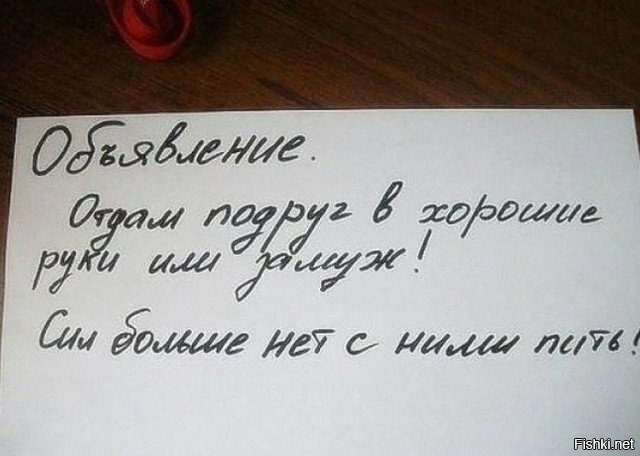 Объявление.
Отдам подруг в хорошие
руки или замуж!
Сил больше нет с ними пить!
Fishki.net